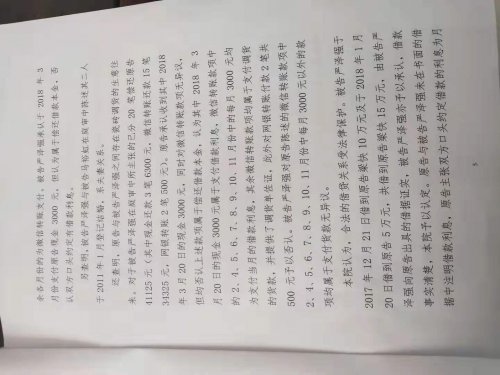 余各月份的为微信转账支付。被告严泽强承认于 2018 年 3
月份支付被告现金 3000 元，但认为属于偿还借款本金，否
认双方口头约定有借款利息。
另查明，被告严泽强与被告马裕船在庭审中陈述其二人
于 2011 年 1 月登记结婚，系夫妻关系。
还查明，原告与被告严泽强之间存在瓷砖调货的生意往
来。对于被告严泽强在庭审中所主张的已分 20 笔偿还原告
41125 元（其中现金还款 3 笔 6300 元，微信转账还款 15 笔
34325 元，网银转账 2 笔 500 元），原告承认收到其中 2018
年 3 月 20 日的现金 3000 元，同时对微信转账款项无异议，
但均否认上述款项属于偿还借款本金，认为其中 2018 年 3
月 20 日的现金 3000 元属于支付借款利息，微信转账款项中
的 2、4、5、6、7、8、9、10、11 月份中的每月 3000 元均
为支付当月的借款利息，其余微信转账款项均属于支付调货
的货款，并提供了调货单佐证，此外对网银转账付款 2 笔共
500 元予以否认。被告严泽强对原告陈述的微信转账款项中
2、4、5、6、7、8、9、10、11 月份中每月 3000 元以外的款
项均属于支付货款无异议。
本院认为，合法的借贷关系受法律保护。被告严泽强于
2017 年 12 月 21 日借到原告梁快 10 万元及于 2018 年 1 月
20 日借到原告 5 万元，共借到原告梁快 15 万元，由被告严
泽强向原告出具的借据证实，被告严泽强亦予以承认，借款
事实清楚，本院予以认定。原告与被告严泽强未在书面的借
据中注明借款利息，原告主张双方口头约定借款的利息为月
5